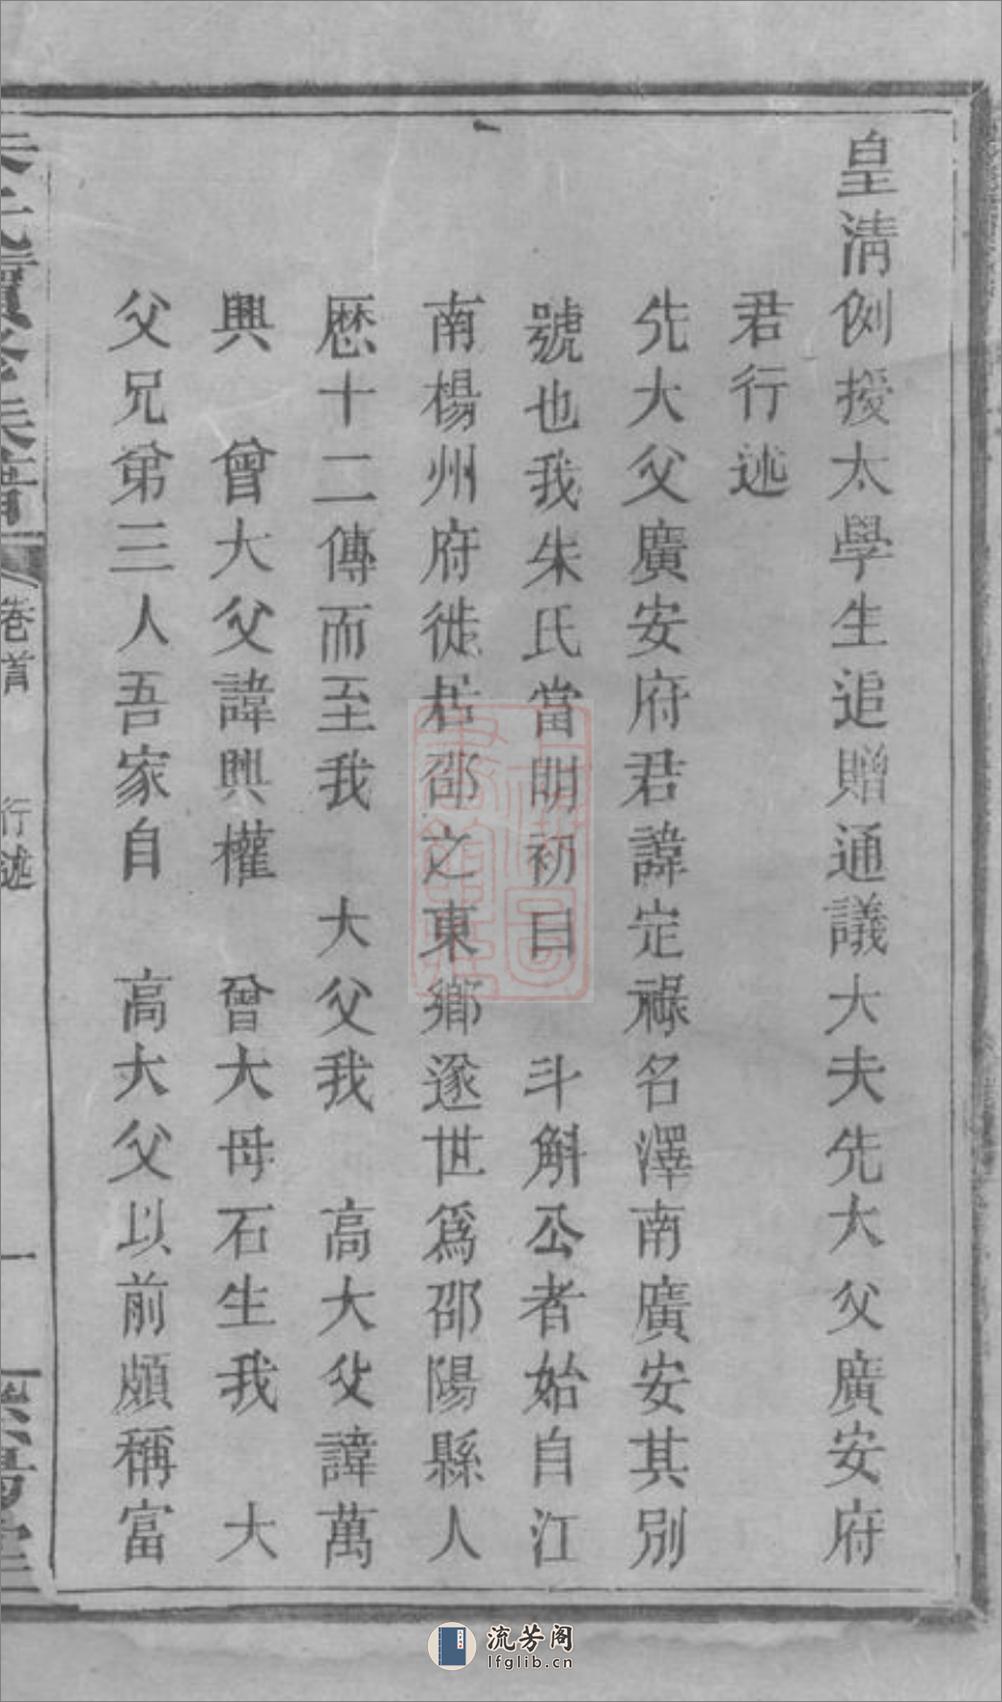 皇清例授太學生追贈通議大夫先大父廣安府
君行述
先大父廣安府君諱定祿名澤南廣安其別
號也我朱氏當明初曰　斗斛公者始自江
南楊州府徙居邵之東鄉遂世爲邵陽縣人
歷十二傳而至我　大父我　高大父諱萬
興　曾大父諱興權　曾大母石生我　大
父兄弟三人吾家自　高大父以前頗稱富
朱氏續修族譜
卷首
行述
一
流芳阁
lfglib.cn